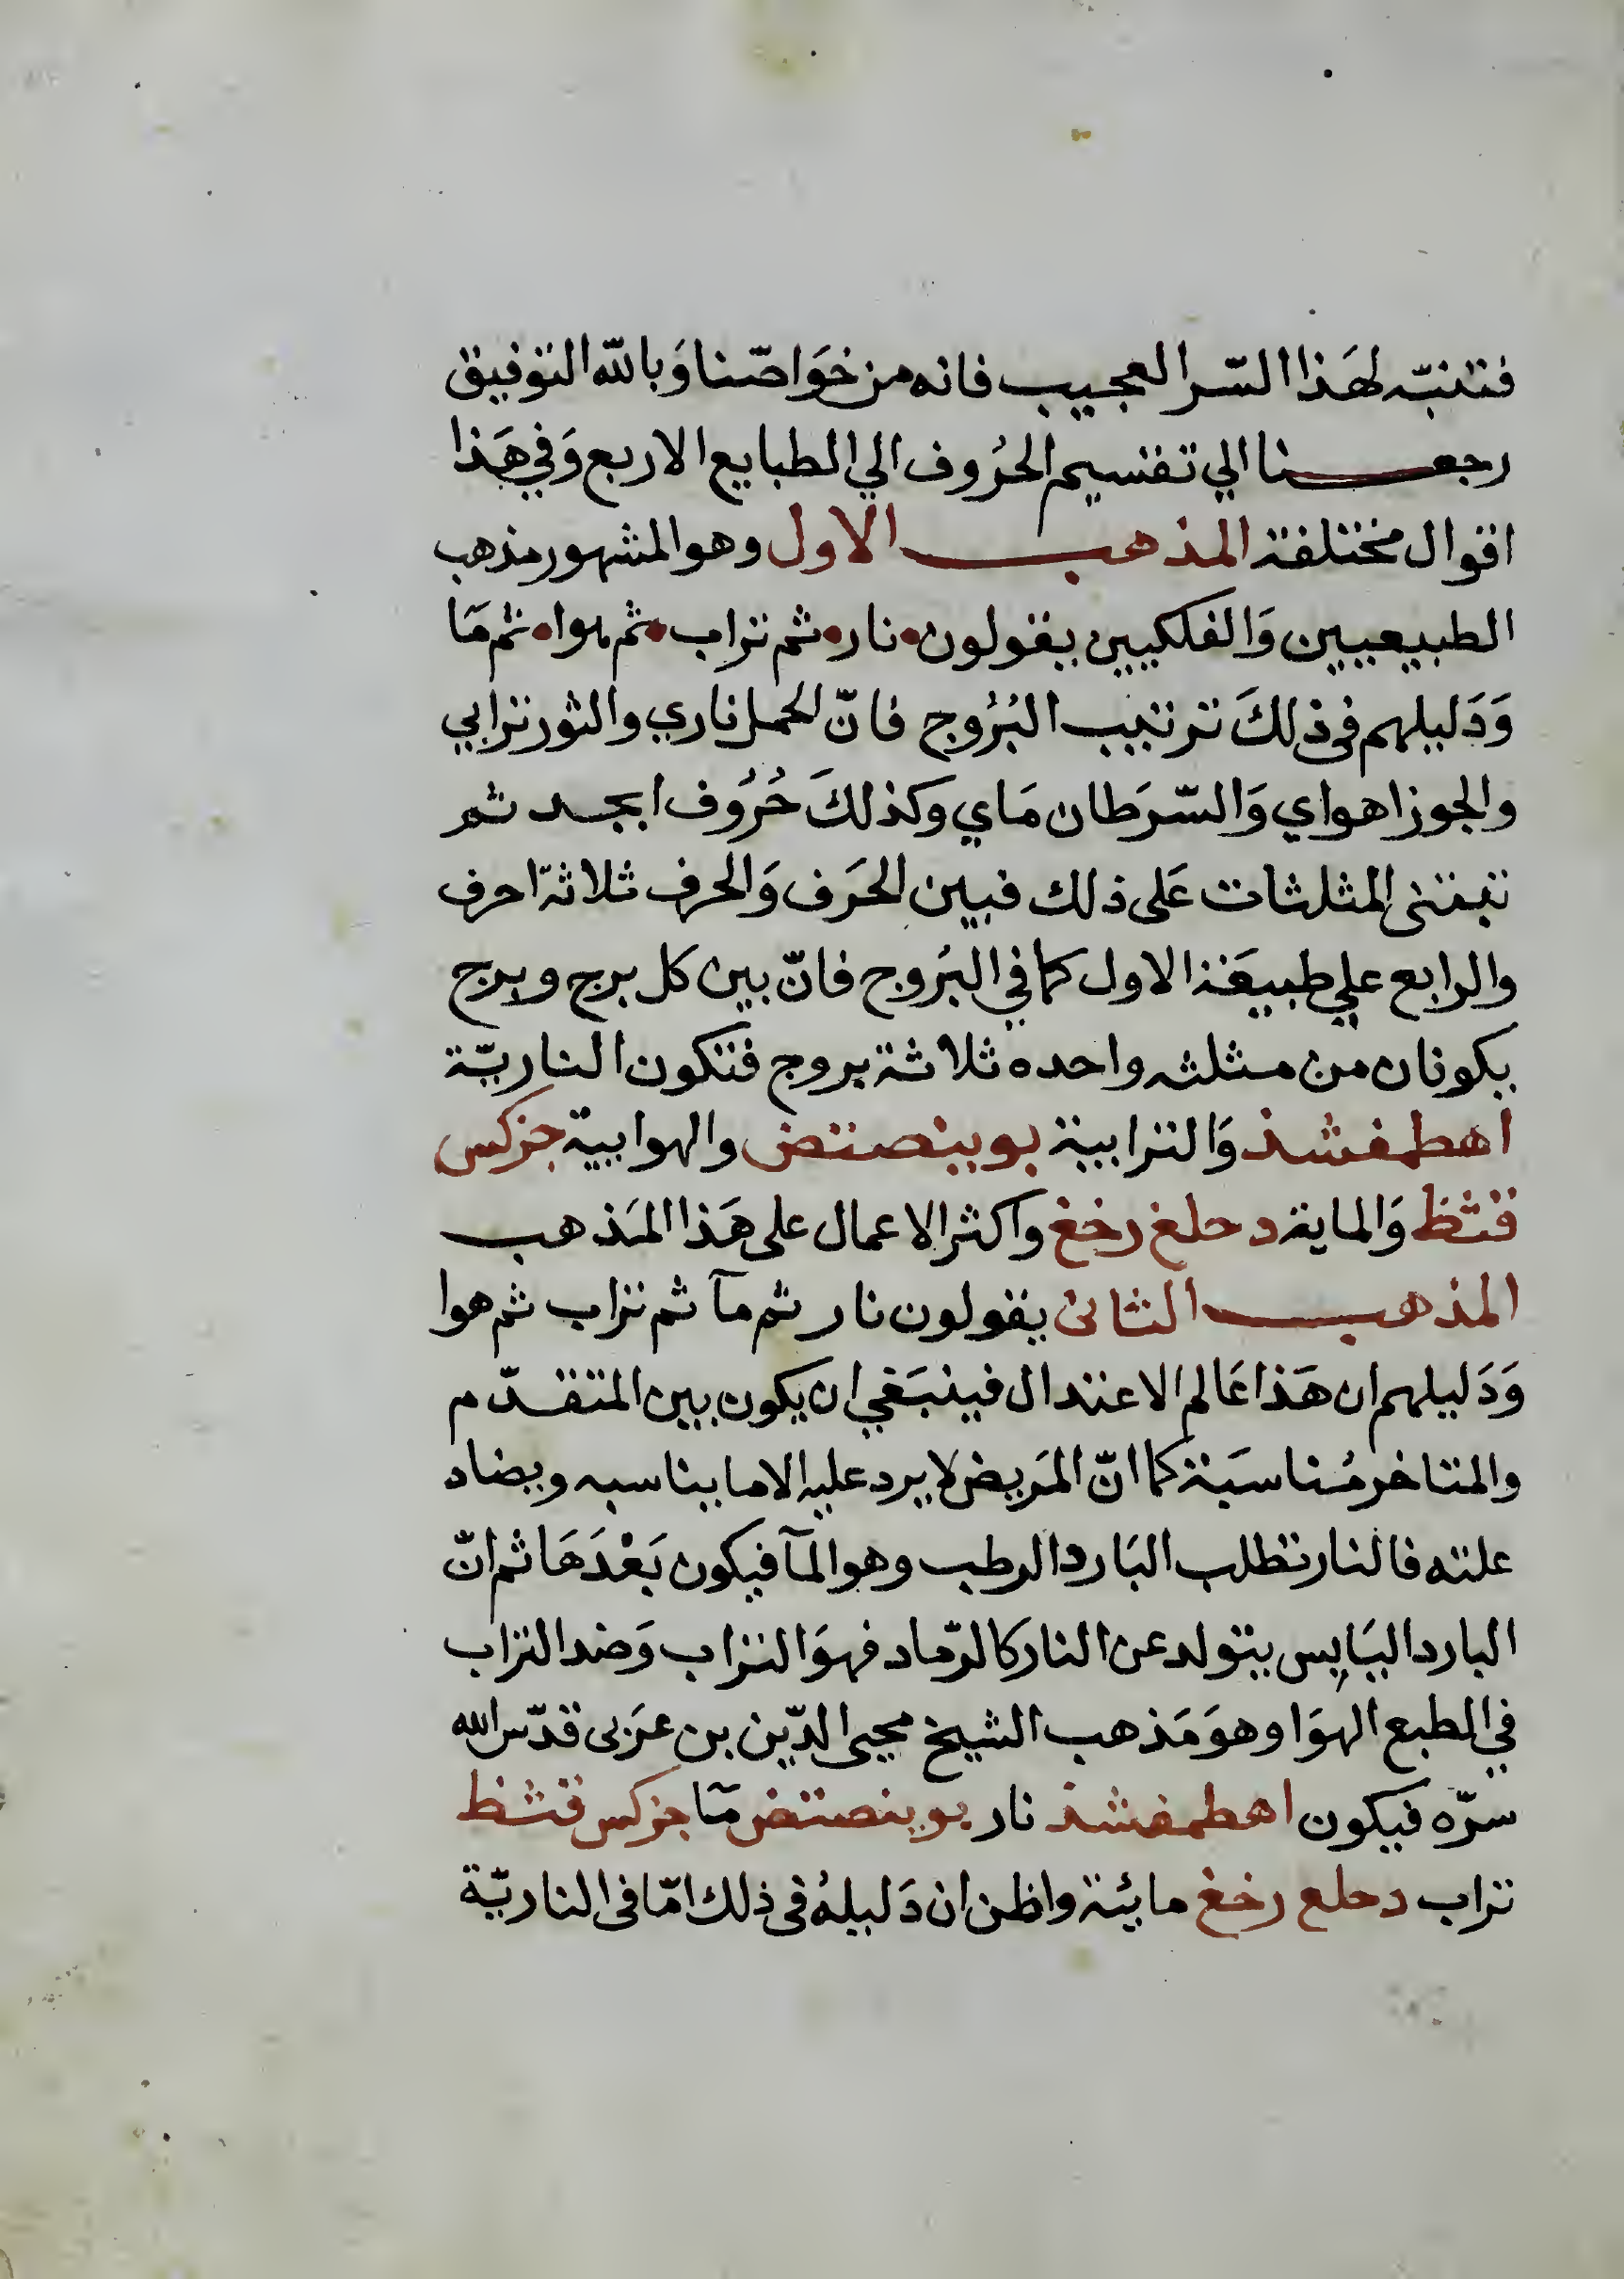 فتنبّه لهَذا السّر العجيب فانه من خوَاصّنا وَبالله التوفيق
رجعنا الي تقسيم الحرُوف الي الطبايع الاربع وَفي هَذا
اقوال مختلفة المذهب الاول وهو المشهور مذهب
الطبيعيين وَالفلكيين يقولون • نار • ثم تراب • ثم هوا • ثم مَا
وَدَليلهم في ذلكَ ترتيب البُرُوج فانّ الحمل ناري والثور ترابي
والجوزا هواي وَالسّرَطان مَاي وكذلكَ حُرُوف ابجد ثم
تبقى المثلثات عَلى ذلك فبين الحَرف وَالحرف ثلاثة احرف
والرابع علي طبيعَة الاول كما في البُروج فانّ بين كل برج وبرج
يكونان من مثلثه واحده ثلاثة بروج فتكون الناريّة
اهطمفشذ وَالترابية بوينصتض والهوايية جزكس
قثظ وَالماية دحلغ رخغ واكثر الاعمال على هَذا المَذهب
المذهب الثانى يقولون نار ثم مآ ثم تراب ثم هوا
وَدَليلهم ان هَذا عَالم الاعتدال فينبَغي ان يكون بين المتقدّم
والمتاخر مُناسَبَة كما انّ المَريض لا يرد عليه الا ما يناسبه ويضاد
علته فالنار تطلب البَارد الرطب وهو المآ فيكون بَعْدَهَا ثم انّ
البارد اليَابس يتولد عن النار كالرّماد فهوَ التراب وَضد التراب
في الطبع الهوَا وهوَ مَذهب الشيخ محيى الدّين بن عرَبى قدّس الله
سرّه فيكون اهطمفشذ نار بوينصتض مآ جزكس قثظ
تراب دحلع رخغ مائية واظن ان دَليلهُ فى ذلك امّا فى الناريّة